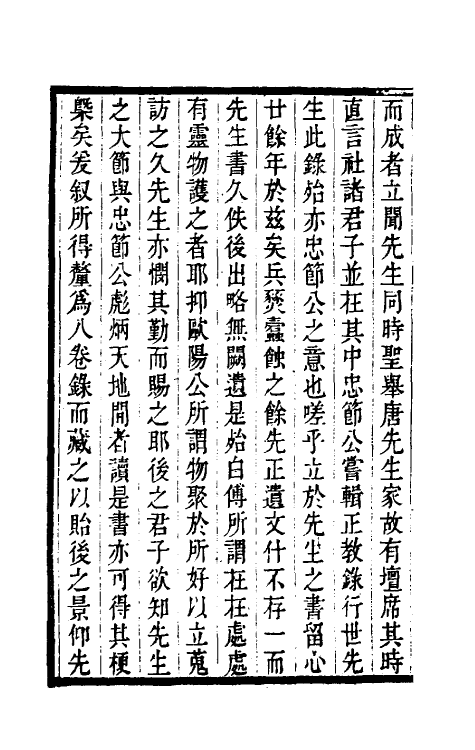 而成者立聞先生同時聖舉唐先生家故有壇席其時
直言社諸君子並在其中忠節公嘗輯正教錄行世先
生此錄殆亦忠節公之意也嗟乎立於先生之書留心
廿餘年於茲矣兵燹蠹蝕之餘先正遺文什不存一而
先生書久佚後出略無闕遺是殆白傅所謂在在處處
有靈物護之者耶抑歐陽公所謂物聚於所好以立蒐
訪之久先生亦憫其勤而賜之耶後之君子欲知先生
之大節與忠節公彪炳天地間者讀是書亦可得其梗
槩矣爰叙所得釐爲八卷錄而藏之以貽後之景仰先